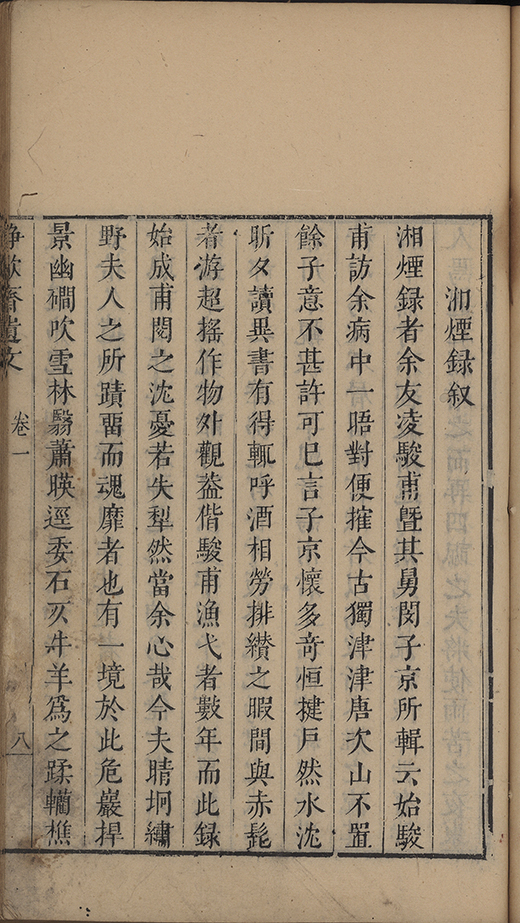 湘煙録叙
湘煙録者余友凌駿甫暨其舅閔子京所輯云始駿
甫訪余病中一晤對便搉今古獨津津唐次山不置
餘子意不甚許可巳言子京懷多奇恒揵戶然水沈
昕夕讀異書有得輒呼酒相勞排纘之暇間與赤髭
者游超搖作物外觀葢偕駿甫漁弋者數年而此録
始成甫閱之沈憂若失犁然當余心哉今夫晴坰繡
野夫人之所蹟畱而魂靡者也有一境於此危巖捍
景幽磵吹雪林翳蕭暎逕委石仄牛羊爲之蹂轥樵
靜歗齋遺文 卷一 八